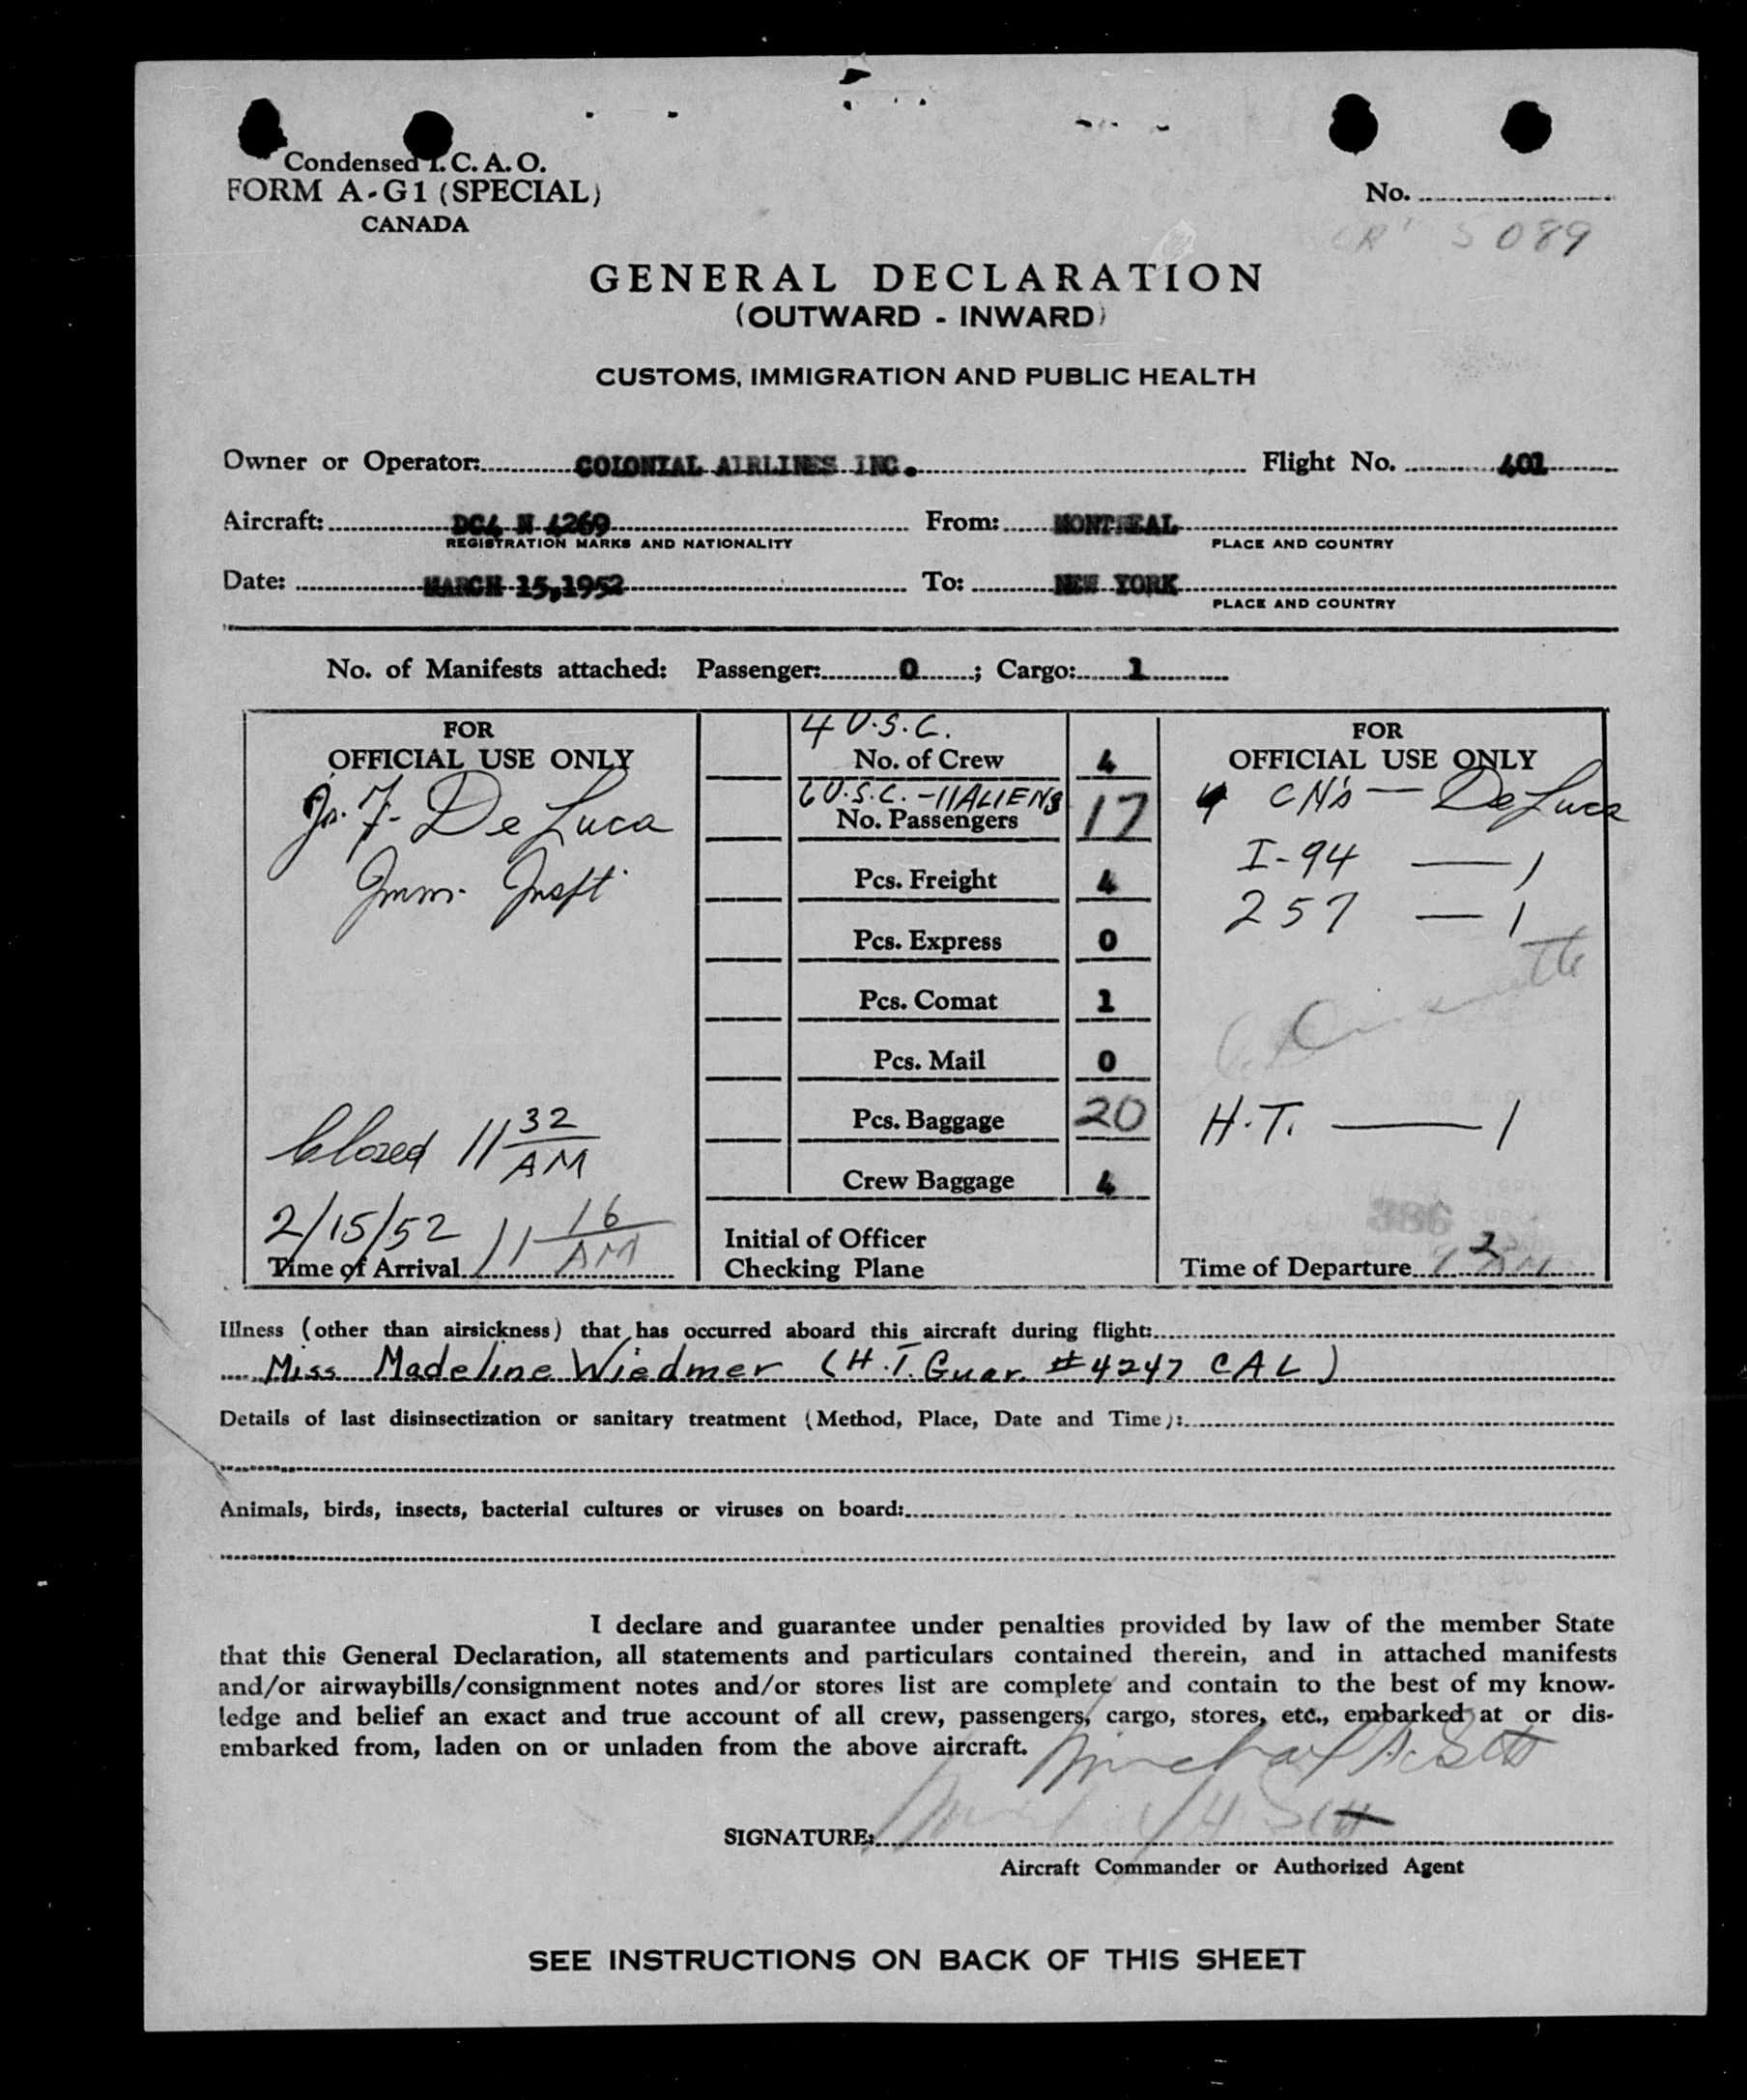 Condensed I. C. A. O.
FORM A-G1 (SPECIAL)
CANADA
No.
5089
GENERAL DECLARATION
(OUTWARD - INWARD)
CUSTOMS, IMMIGRATION AND PUBLIC HEALTH
Owner or Operator: COLONIAL AIRLINES INC. Flight No. 401
Aircraft: DC4 N 4269 From: MONTREAL
REGISTRATION MARKS AND NATIONALITY PLACE AND COUNTRY
Date: MARCH 15,1952 To: NEW YORK
PLACE AND COUNTRY
No. of Manifests attached: Passenger: 0 ; Cargo: 1
FOR
OFFICIAL USE ONLY
De Luca
Closed 11 32 AM
2/15/52 11 16 AM
Time of Arrival
4 U.S.C.
No. of Crew 4
6 U.S.C. - 11 ALIENS
No. Passengers 17
Pcs. Freight 4
Pcs. Express 0
Pcs. Comat 1
Pcs. Mail 0
Pcs. Baggage 20
Crew Baggage 4
Initial of Officer
Checking Plane
FOR
OFFICIAL USE ONLY
4 CN's — De Luca
I-94 — 1
257 — 1
H.T. — 1
386
Time of Departure
Illness (other than airsickness) that has occurred aboard this aircraft during flight:
Miss Madeline Wiedmer (H.T. Guar. #4247 CAL)
Details of last disinsectization or sanitary treatment (Method, Place, Date and Time):
Animals, birds, insects, bacterial cultures or viruses on board:
I declare and guarantee under penalties provided by law of the member State
that this General Declaration, all statements and particulars contained therein, and in attached manifests
and/or airwaybills/consignment notes and/or stores list are complete and contain to the best of my know-
ledge and belief an exact and true account of all crew, passengers, cargo, stores, etc., embarked at or dis-
embarked from, laden on or unladen from the above aircraft.
SIGNATURE:
Aircraft Commander or Authorized Agent
SEE INSTRUCTIONS ON BACK OF THIS SHEET